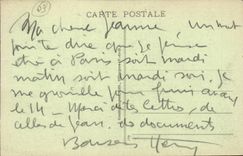 CARTE POSTALE
Ma chère Jeanne un mot
pour te dire que je pense
être à Paris soit mardi
matin soit mardi soir, je
me grouille pour finir avant
le 14 - Merci des lettres, de
celles de Jean, de documents
Baisers Henry